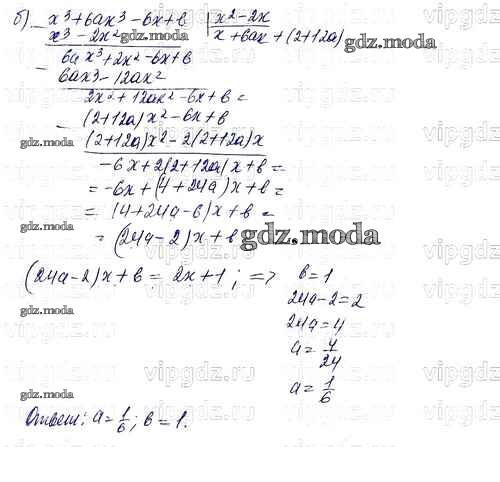 б) x³+6ax³-6x+b | x²-2x
x³-2x² x+6ax+(2+12a)
gdz.moza
6ax³+2x²-6x+b
6ax³-12ax²
2x²+12ax²-6x+b=
gdz.moza
(2+12a)x²-6x+b
(2+12a)x²-2(2+12a)x
gdz.moza
-6x+2(2+12a)x+b=
=-6x+(4+24a)x+b=
=(4+24a-6)x+b=
gdz.moza
=(24a-2)x+b
gdz.moza
(24a-2)x+b=2x+1; => b=1
24a-2=2
gdz.moza
24a=4
a=4/24
a=1/6
gdz.moza
Ответ: a=1/6; b=1.
vipgdz.ru